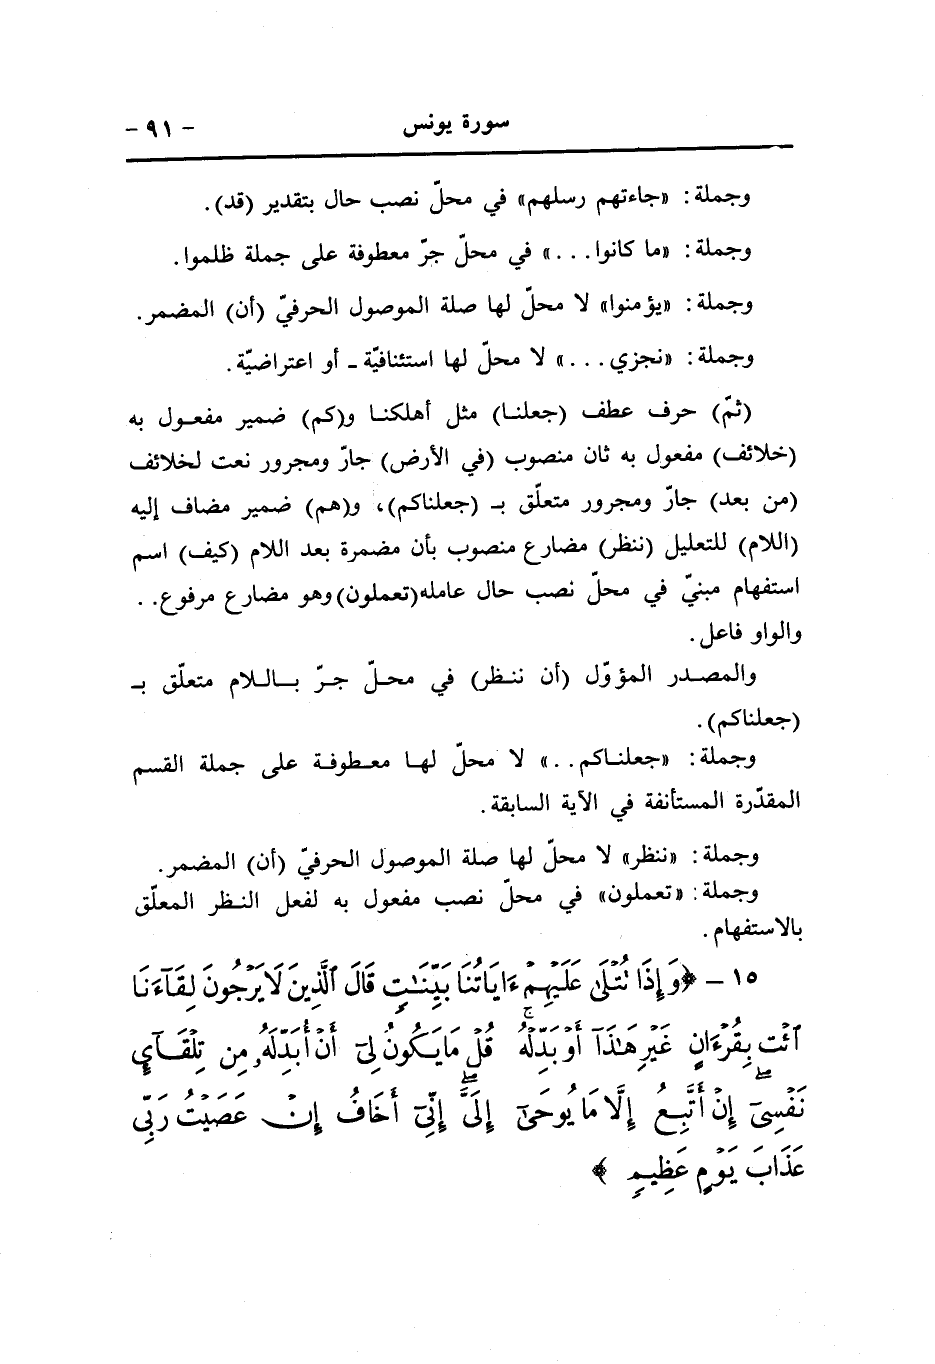 سورة يونس - ٩١ -
وجملة: «جاءتهم رسلهم» في محلّ نصب حال بتقدير (قد).
وجملة: «ما كانوا...» في محلّ جرّ معطوفة على جملة ظلموا.
وجملة: «يؤمنوا» لا محلّ لها صلة الموصول الحرفيّ (أن) المضمر.
وجملة: «نجزي...» لا محلّ لها استئنافيّة ـ أو اعتراضيّة.
(ثمّ) حرف عطف (جعلنا) مثل أهلكنا و(كم) ضمير مفعول به
(خلائف) مفعول به ثان منصوب (في الأرض) جارّ ومجرور نعت لخلائف
(من بعد) جارّ ومجرور متعلّق بـ (جعلناكم)، و(هم) ضمير مضاف إليه
(اللام) للتعليل (ننظر) مضارع منصوب بأن مضمرة بعد اللام (كيف) اسم
استفهام مبنيّ في محلّ نصب حال عامله(تعملون)وهو مضارع مرفوع..
والواو فاعل.
والمصدر المؤوّل (أن ننظر) في محلّ جرّ باللام متعلّق بـ
(جعلناكم).
وجملة: «جعلناكم..» لا محلّ لها معطوفة على جملة القسم
المقدّرة المستأنفة في الآية السابقة.
وجملة: «ننظر» لا محلّ لها صلة الموصول الحرفيّ (أن) المضمر.
وجملة: «تعملون» في محلّ نصب مفعول به لفعل النظر المعلّق
بالاستفهام.
١٥ - ﴿وَإِذَا تُتْلَىٰ عَلَيْهِمْ ءَايَاتُنَا بَيِّنَـٰتٍ قَالَ ٱلَّذِينَ لَا يَرْجُونَ لِقَآءَنَا
ٱئْتِ بِقُرْءَانٍ غَيْرِ هَـٰذَآ أَوْ بَدِّلْهُ ۚ قُلْ مَا يَكُونُ لِىٓ أَنْ أُبَدِّلَهُۥ مِن تِلْقَآىِٕ
نَفْسِىٓ ۖ إِنْ أَتَّبِعُ إِلَّا مَا يُوحَىٰٓ إِلَىَّ ۖ إِنِّىٓ أَخَافُ إِنْ عَصَيْتُ رَبِّى
عَذَابَ يَوْمٍ عَظِيمٍ ﴾